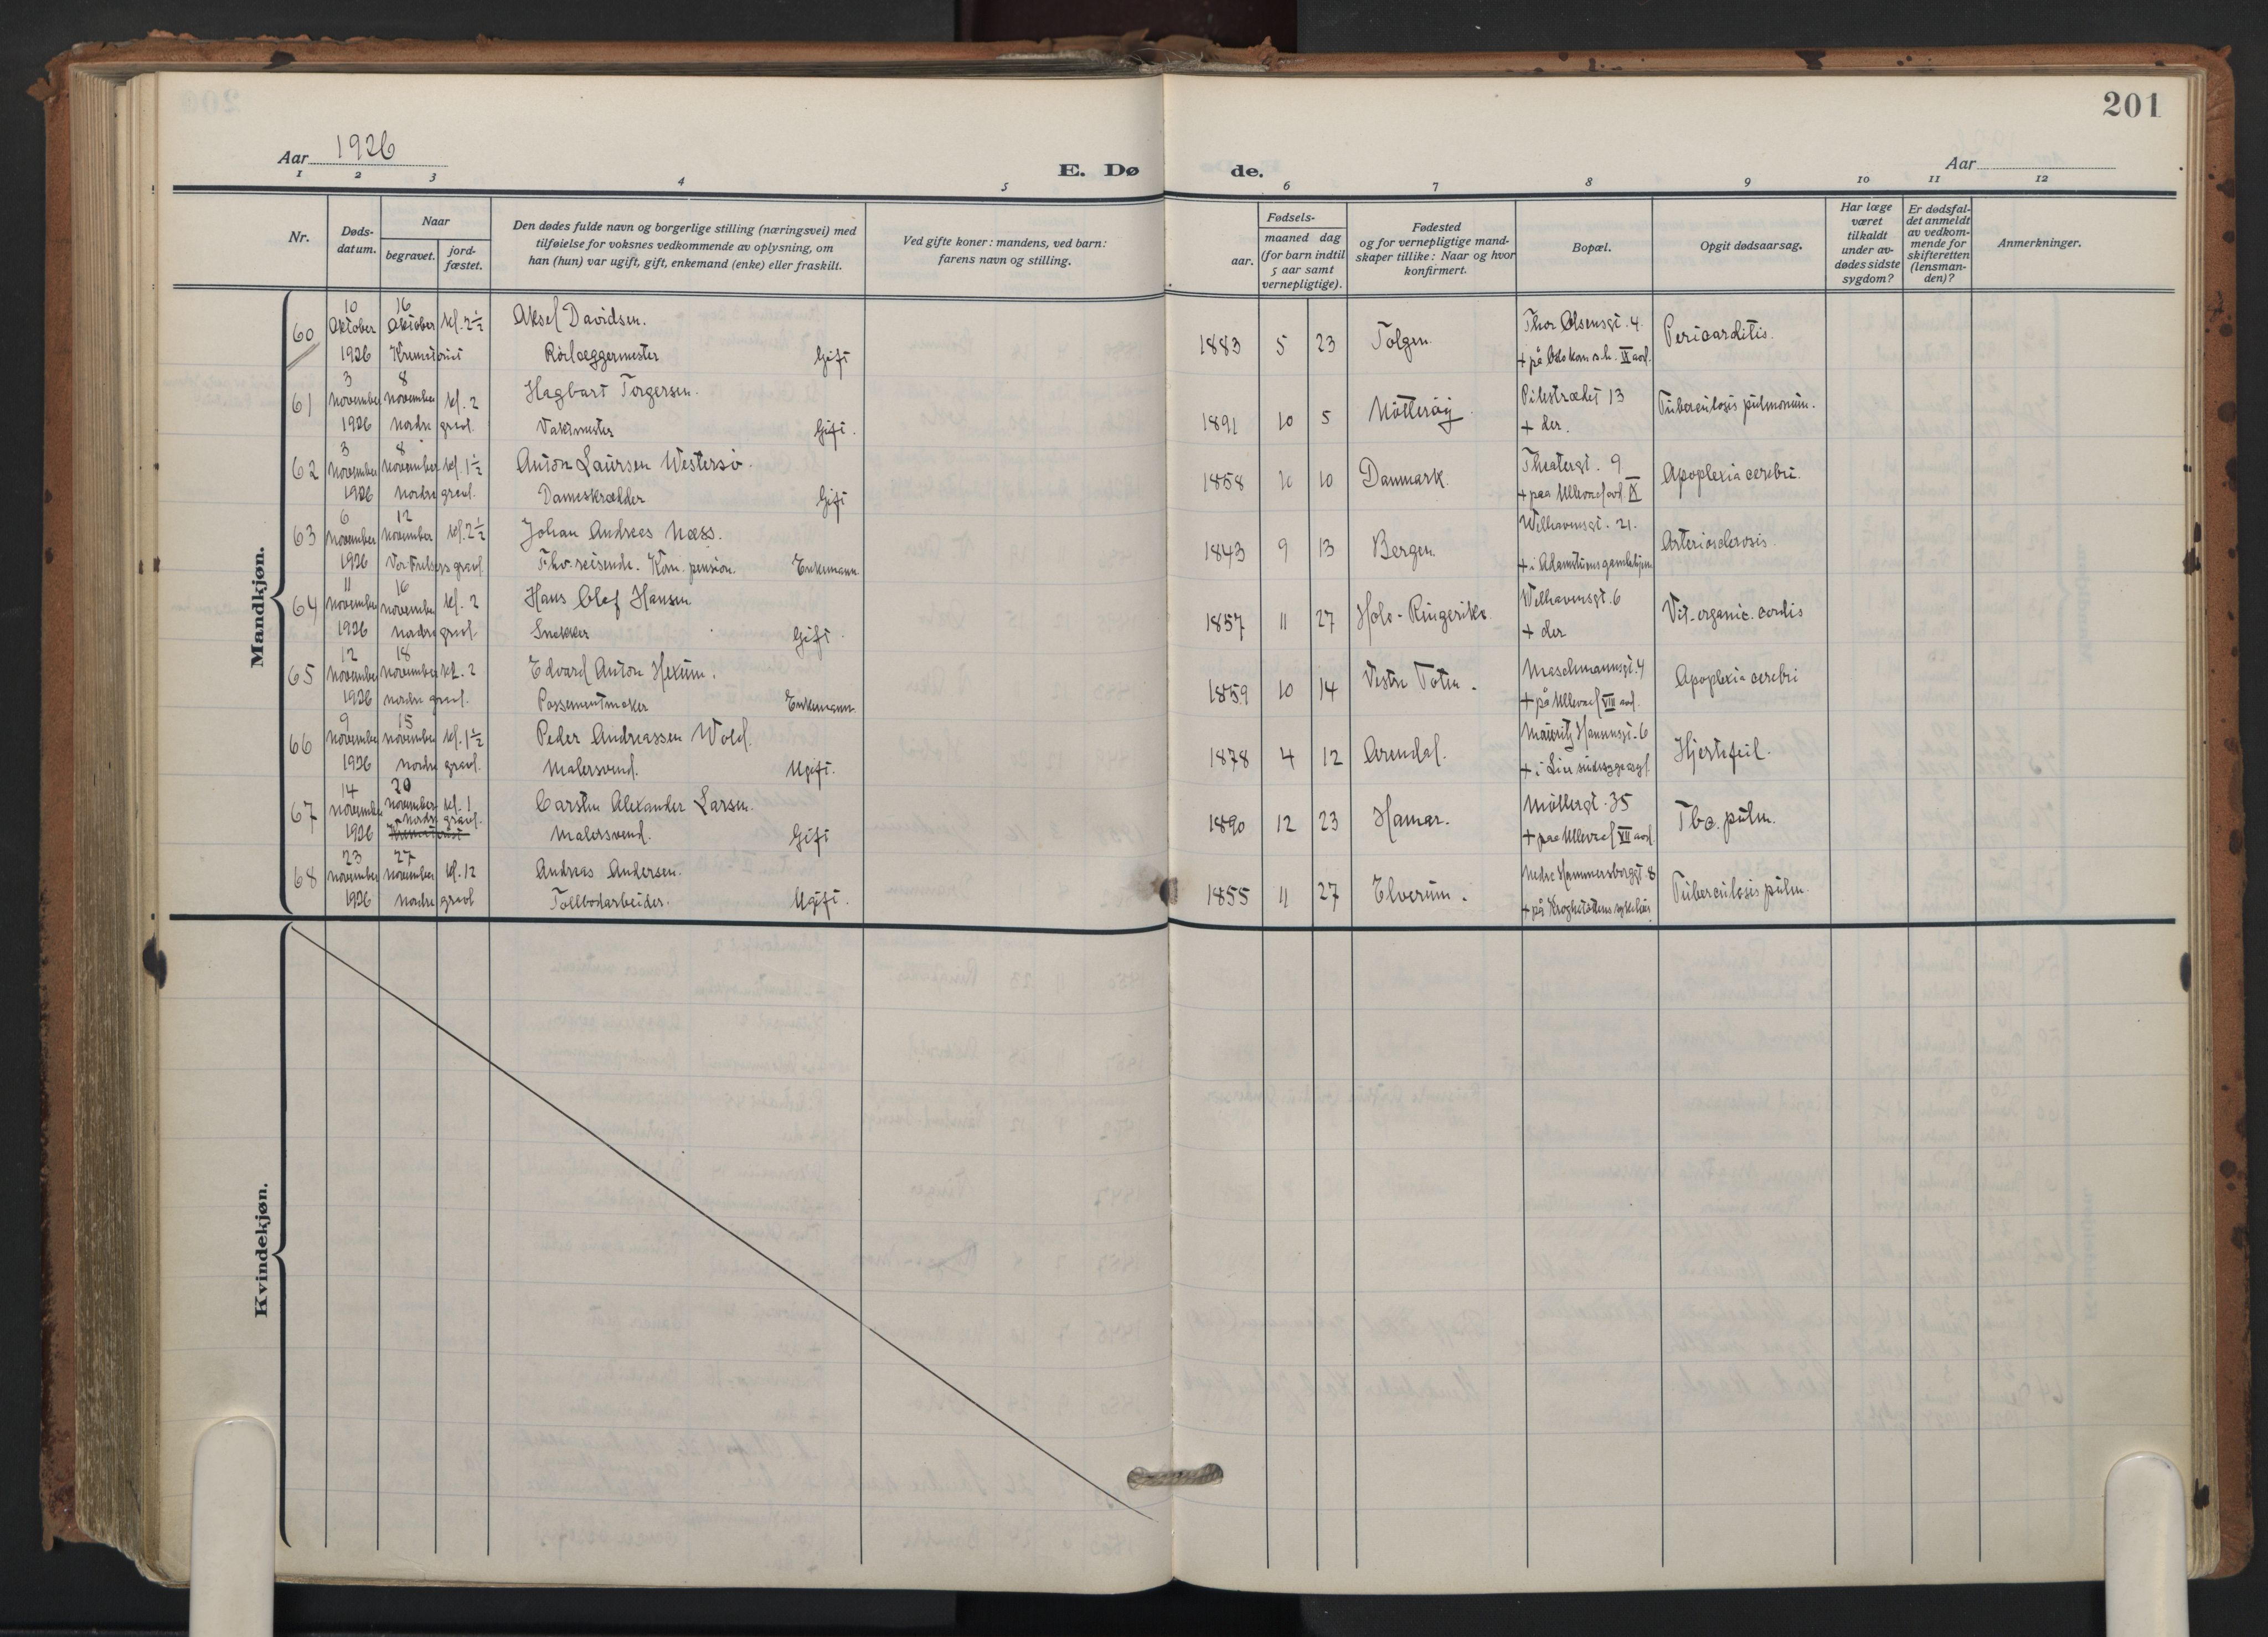 201
Aar 1926
E. Dø de.
Aar
1 2 3 4 5 6 7 8 9 10 11 12
Nr.
Døds-
datum.
Naar
begravet.
jord-
fæstet.
Den dødes fulde navn og borgerlige stilling (næringsvei) med
tilføielse for voksnes vedkommende av oplysning, om
han (hun) var ugift, gift, enkemand (enke) eller fraskilt.
Ved gifte koner: mandens, ved barn:
farens navn og stilling.
Fødsels-
aar.
maaned dag
(for barn indtil
5 aar samt
vernepligtige).
Fødested
og for vernepligtige mand-
skaper tillike: Naar og hvor
konfirmert.
Bopæl.
Opgit dødsaarsag.
Har læge
været
tilkaldt
under av-
dødes sidste
sygdom?
Er dødsfal-
det anmeldt
av vedkom-
mende for
skifteretten
(lensman-
den)?
Anmerkninger.
Mandkjøn.
10 16
60 Oktober Oktober kl. 2½ Aksel Davidsen. 1883 5 23 Tolgen. Thor Olsensgt. 4. Pericarditis.
1926 Krematoriet Rörlæggermester Gift + på Oslo kom. s.h. IX avd.
3 8
61 November November kl. 2 Hagbart Torgersen. 1891 10 5 Nötteröy. Pilestrædet 13 Tuberculosis pulmonum.
1926 Nordre gravl. Vaktmester Gift. + der.
3 8
62 November November kl. 1½ Anton Laursen Westersö. 1858 10 10 Danmark. Theatergt. 9 Apoplexia cerebri.
1926 Nordre gravl. Dameskrædder Gift + paa Ullevaal avd. IX
6 12
63 November November kl. 2½ Johan Andreas Næss. 1843 9 13 Bergen. Welhavensgt. 21. Arteriosclerosis.
1926 Vor Frelsers gravl. Fhv. reisende. Kom. pension. Enkemann + i Adamstuens gamlehjem
11 16
64 November November kl. 2 Hans Olaf Hansen 1857 11 27 Hole - Ringerike. Welhavensgt. 6 Vit. organic. cordis
1926 Nordre gravl. Snekker Gift. + der
12 18
65 November November kl. 2 Edvard Anton Hexum. 1859 10 14 Vestre Toten. Maschmannsgt. 4 Apoplexia cerebri
1926 Nordre gravl. Possementmaker Enkemann + på Ullevaal VIII avd.
9 15
66 November November kl. 1½ Peder Andreassen Wold. 1878 4 12 Arendal. Mauritz Hansensgt. 6 Hjertefeil.
1926 Nordre gravl. Malersvend. Ugift. + i Lier sindssygeasyl.
14 20
67 November November kl. 1 Carsten Alexander Larsen. 1890 12 23 Hamar. Möllergt. 35 Tbc. pulm.
Nordre gravl.
1926 Krematoriet Malersvend. Gift + paa Ullevaal VII avd.
23 27
68 November November kl. 12 Andreas Andersen. 1855 11 27 Elverum. Nedre Hammersborggt. 8 Tuberculosis pulm.
1926 Nordre gravl Tollbodarbeider. Ugift. + på Krogstöttens sykehus
Kvindekjøn.